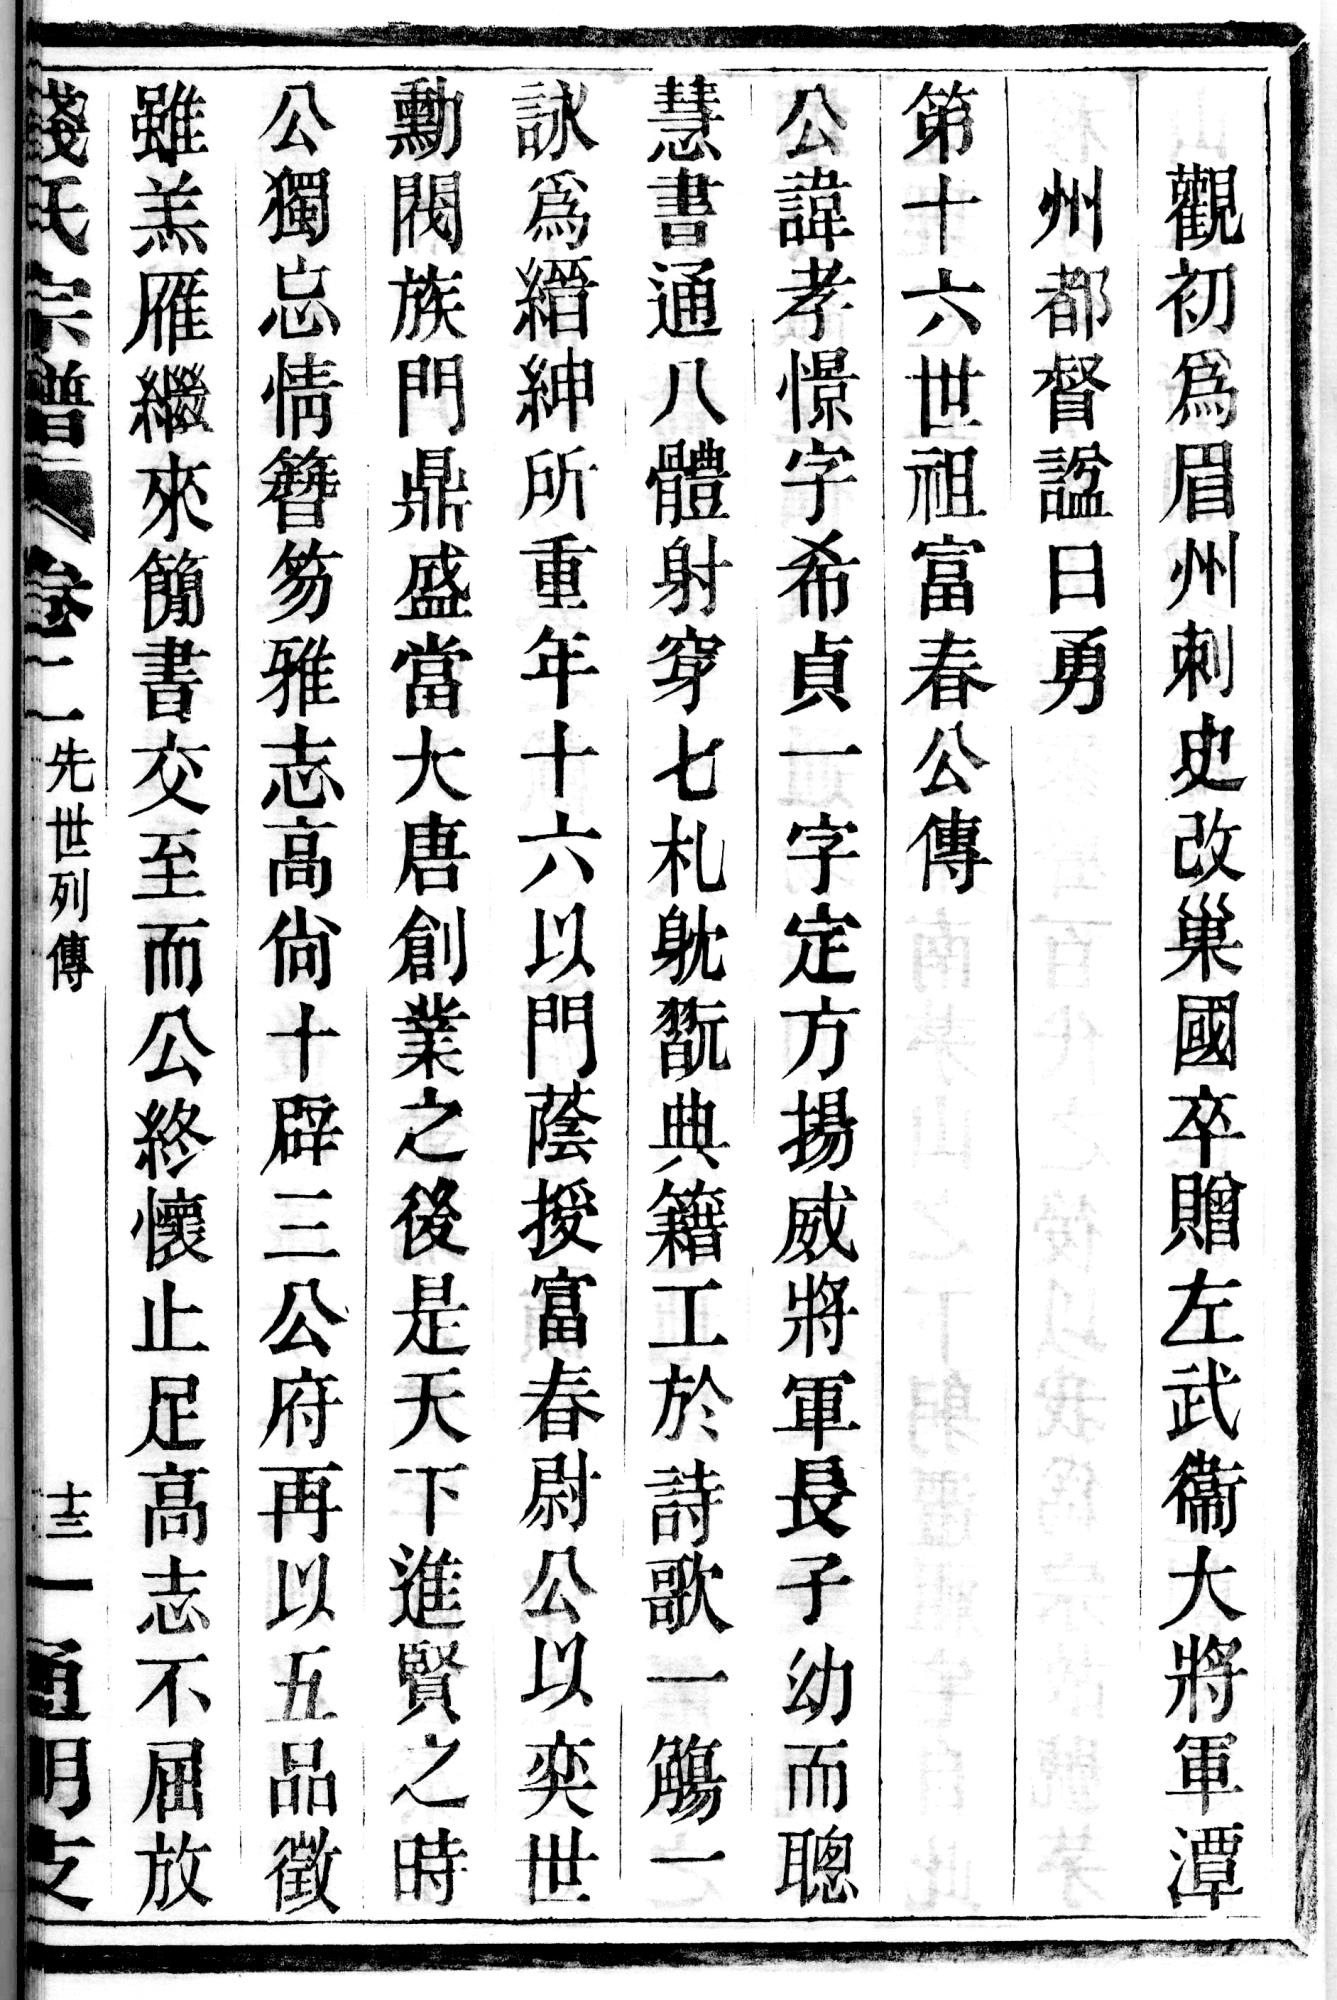 觀初爲眉州刺史改巢國卒贈左武衞大將軍潭
州都督諡曰勇
第十六世祖富春公傳
公諱孝憬字希貞一字定方揚威將軍長子幼而聰
慧書通八體射穿七札躭翫典籍工於詩歌一觴一
詠爲縉紳所重年十六以門蔭授富春尉公以奕世
勳閥族門鼎盛當大唐創業之後是天下進賢之時
公獨忘情簪笏雅志高尙十辟三公府再以五品徵
雖羔雁繼來簡書交至而公終懷止足高志不屈放
錢氏宗譜 卷二 先世列傳 十三 通明支